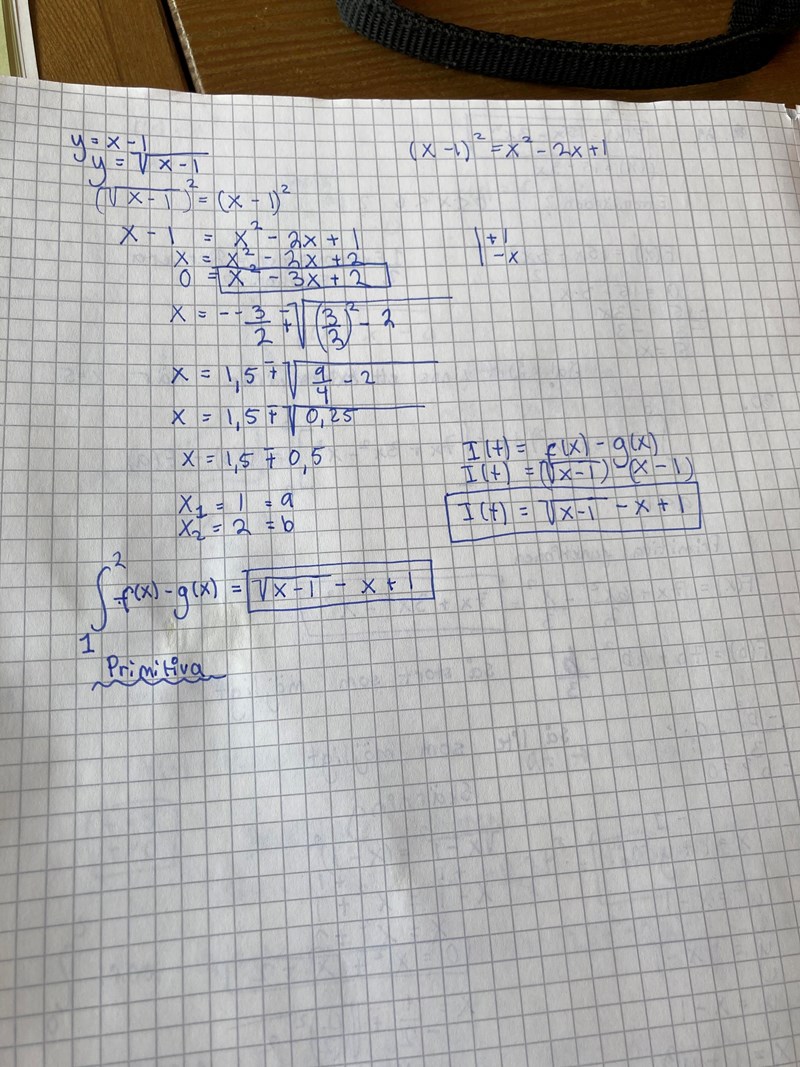 y = x - 1
y = √(x-1)
(x - 1)² = x² - 2x + 1
(√(x-1))² = (x - 1)²
x - 1 = x² - 2x + 1
|+1
x = x² - 2x + 2
|-x
0 = x² - 3x + 2
x = --3/2 ∓ √((3/3)² - 2)
x = 1,5 ∓ √(9/4 - 2)
x = 1,5 ∓ √0,25
x = 1,5 ∓ 0,5
x₁ = 1 = a
x₂ = 2 = b
I(t) = f(x) - g(x)
I(t) = (√(x-1)) (x - 1)
I(t) = √(x-1) - x + 1
∫₁² f(x) - g(x) = √(x-1) - x + 1
Primitiva